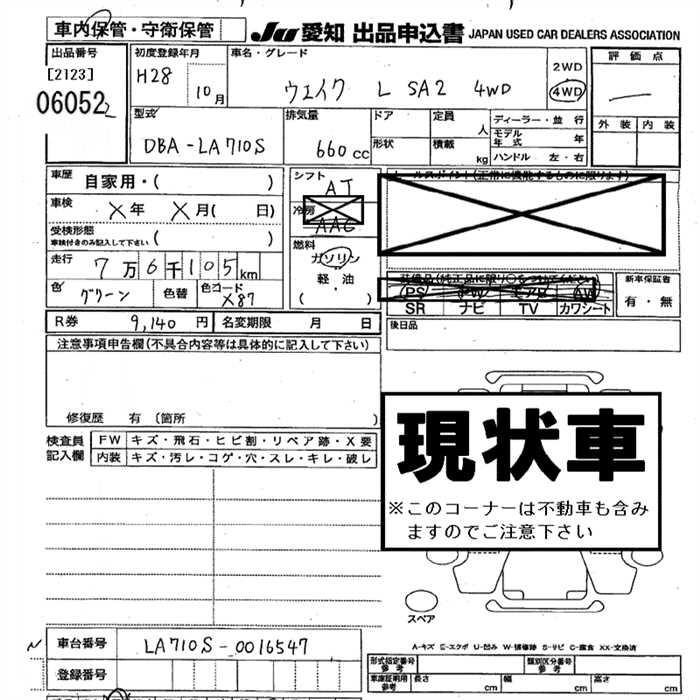 車内保管・守衛保管
JU 愛知 出品申込書 JAPAN USED CAR DEALERS ASSOCIATION
出品番号 初度登録年月 車名・グレード 評価点
[2123] H28 10月 ウェイク L SA2 4WD 2WD 4WD
060522
型式 排気量 ドア 定員 人 ディーラー・並行 外装 内装
DBA-LA710S 660cc 形状 積載 kg モデル年式 年
ハンドル 左・右
車歴 自家用・( ) シフト AT
車検 X年 X月( 日) 冷房 AAC
受検形態 車検付きのみ記入して下さい ( ) 燃料 ガソリン 軽・油 ・ ( )
走行 7万6千105km
色 グリーン 色替 色コード X87
セールスポイント(正常に機能するものに限ります)
装備品(純正品に限り○をつけてください) 新車保証書
PS PW エアB AW 有・無
SR ナビ TV カワシート
R券 9,140円 名変期限 月 日 後日品
注意事項申告欄(不具合内容等は具体的に記入して下さい)
修復歴 有 〔箇所 )
検査員記入欄 FW キズ・飛石・ヒビ割・リペア跡・X要
内装 キズ・汚レ・コゲ・穴・スレ・キレ・破レ
現状車
※このコーナーは不動車も含み
ますのでご注意下さい
スペア
A-キズ E-エクボ U-凹み W-補修跡 S-サビ C-腐食 XX-交換済
車台番号 LA710S-0016547
登録番号
形式指定番号 参考 類別区分番号 参考
車庫証明用 参考 長さ cm 幅 cm 高さ cm